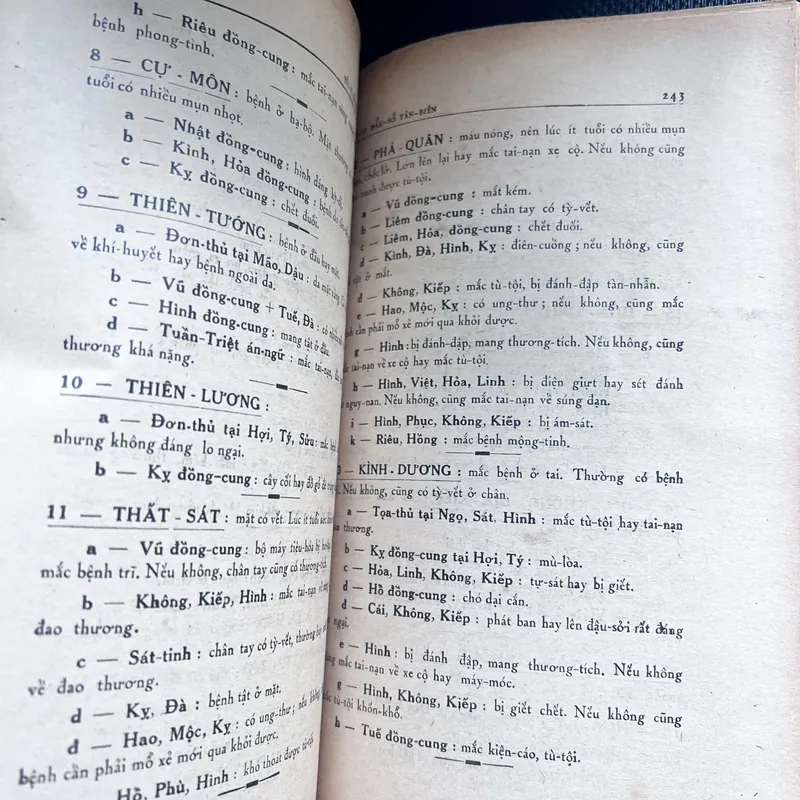 h — Riêu đồng-cung : mắc tai-nạn
bệnh phong-tình.
8 — CỰ - MÔN : bệnh ở hạ-bộ. Mặt
tuổi có nhiều mụn nhọt.
a — Nhật đồng-cung : hình dáng
b — Kình, Hỏa đồng-cung : bệnh
c — Kỵ đồng-cung : chết đuối.
9 — THIÊN - TƯỚNG : bệnh ở đầu hay mặt.
a — Đơn-thủ tại Mão, Dậu : da mặt vàng.
về khí-huyết hay bệnh ngoài da.
b — Vũ đồng-cung + Tuế, Đà : có
c — Hình đồng-cung : mang tật ở đầu.
d — Tuần-Triệt án-ngữ : mắc tai-nạn,
thương khá nặng.
10 — THIÊN - LƯƠNG :
a — Đơn-thủ tại Hợi, Tý, Sửu : mắc
nhưng không đáng lo ngại.
b — Kỵ đồng-cung : cây cối hay đồ gỗ đè
11 — THẤT - SÁT : mặt có vết. Lúc ít tuổi
a — Vũ đồng-cung : bộ máy tiêu-hóa bị
mắc bệnh trĩ. Nếu không, chân tay cũng có thương-tích.
b — Không, Kiếp, Hình : mắc tai-nạn về
đao thương.
c — Sát-tinh : chân tay có tỳ-vết, thường hay
về đao thương.
d — Kỵ, Đà : bệnh tật ở mặt.
d — Hao, Mộc, Kỵ : có ung-thư ; nếu không
bệnh cần phải mổ xẻ mới qua khỏi được.
Hồ, Phù, Hình : khó thoát được
ĐẨU-SỐ TÂN-BIÊN 243
— PHÁ - QUÂN : máu nóng, nên lúc ít tuổi có nhiều mụn
chốc lở. Lớn lên lại hay mắc tai-nạn xe cộ. Nếu không cũng
tránh được tù-tội.
a — Vũ đồng-cung : mắt kém.
b — Liêm đồng-cung : chân tay có tỳ-vết.
c — Liêm, Hỏa, đồng-cung : chết đuối.
d — Kình, Đà, Hình, Kỵ : điên-cuồng ; nếu không, cũng
tật ở mắt.
d — Không, Kiếp : mắc tù-tội, bị đánh-đập tàn-nhẫn.
e — Hao, Mộc, Kỵ : có ung-thư ; nếu không, cũng mắc
cần phải mổ xẻ mới qua khỏi được.
g — Hình : bị đánh-đập, mang thương-tích. Nếu không, cũng
mắc tai-nạn về xe cộ hay mắc tù-tội.
h — Hình, Việt, Hỏa, Linh : bị điện giựt hay sét đánh
nguy-nan. Nếu không, cũng mắc tai-nạn về súng đạn.
i — Hình, Phục, Không, Kiếp : bị ám-sát.
k — Riêu, Hồng : mắc bệnh mộng-tinh.
— KÌNH - DƯƠNG : mắc bệnh ở tai. Thường có bệnh
Nếu không, cũng có tỳ-vết ở chân.
a — Tọa-thủ tại Ngọ, Sát, Hình : mắc tù-tội hay tai-nạn
thương.
b — Kỵ đồng-cung tại Hợi, Tý : mù-lòa.
c — Hỏa, Linh, Không, Kiếp : tự-sát hay bị giết.
d — Hồ đồng-cung : chó dại cắn.
d — Cái, Không, Kiếp : phát ban hay lên đậu-sởi rất đáng
ngại.
e — Hình : bị đánh đập, mang thương-tích. Nếu không
mắc tai-nạn về xe cộ hay máy-móc.
g — Hình, Không, Kiếp : bị giết chết. Nếu không cũng
tù-tội khốn-khổ.
h — Tuế đồng-cung : mắc kiện-cáo, tù-tội.